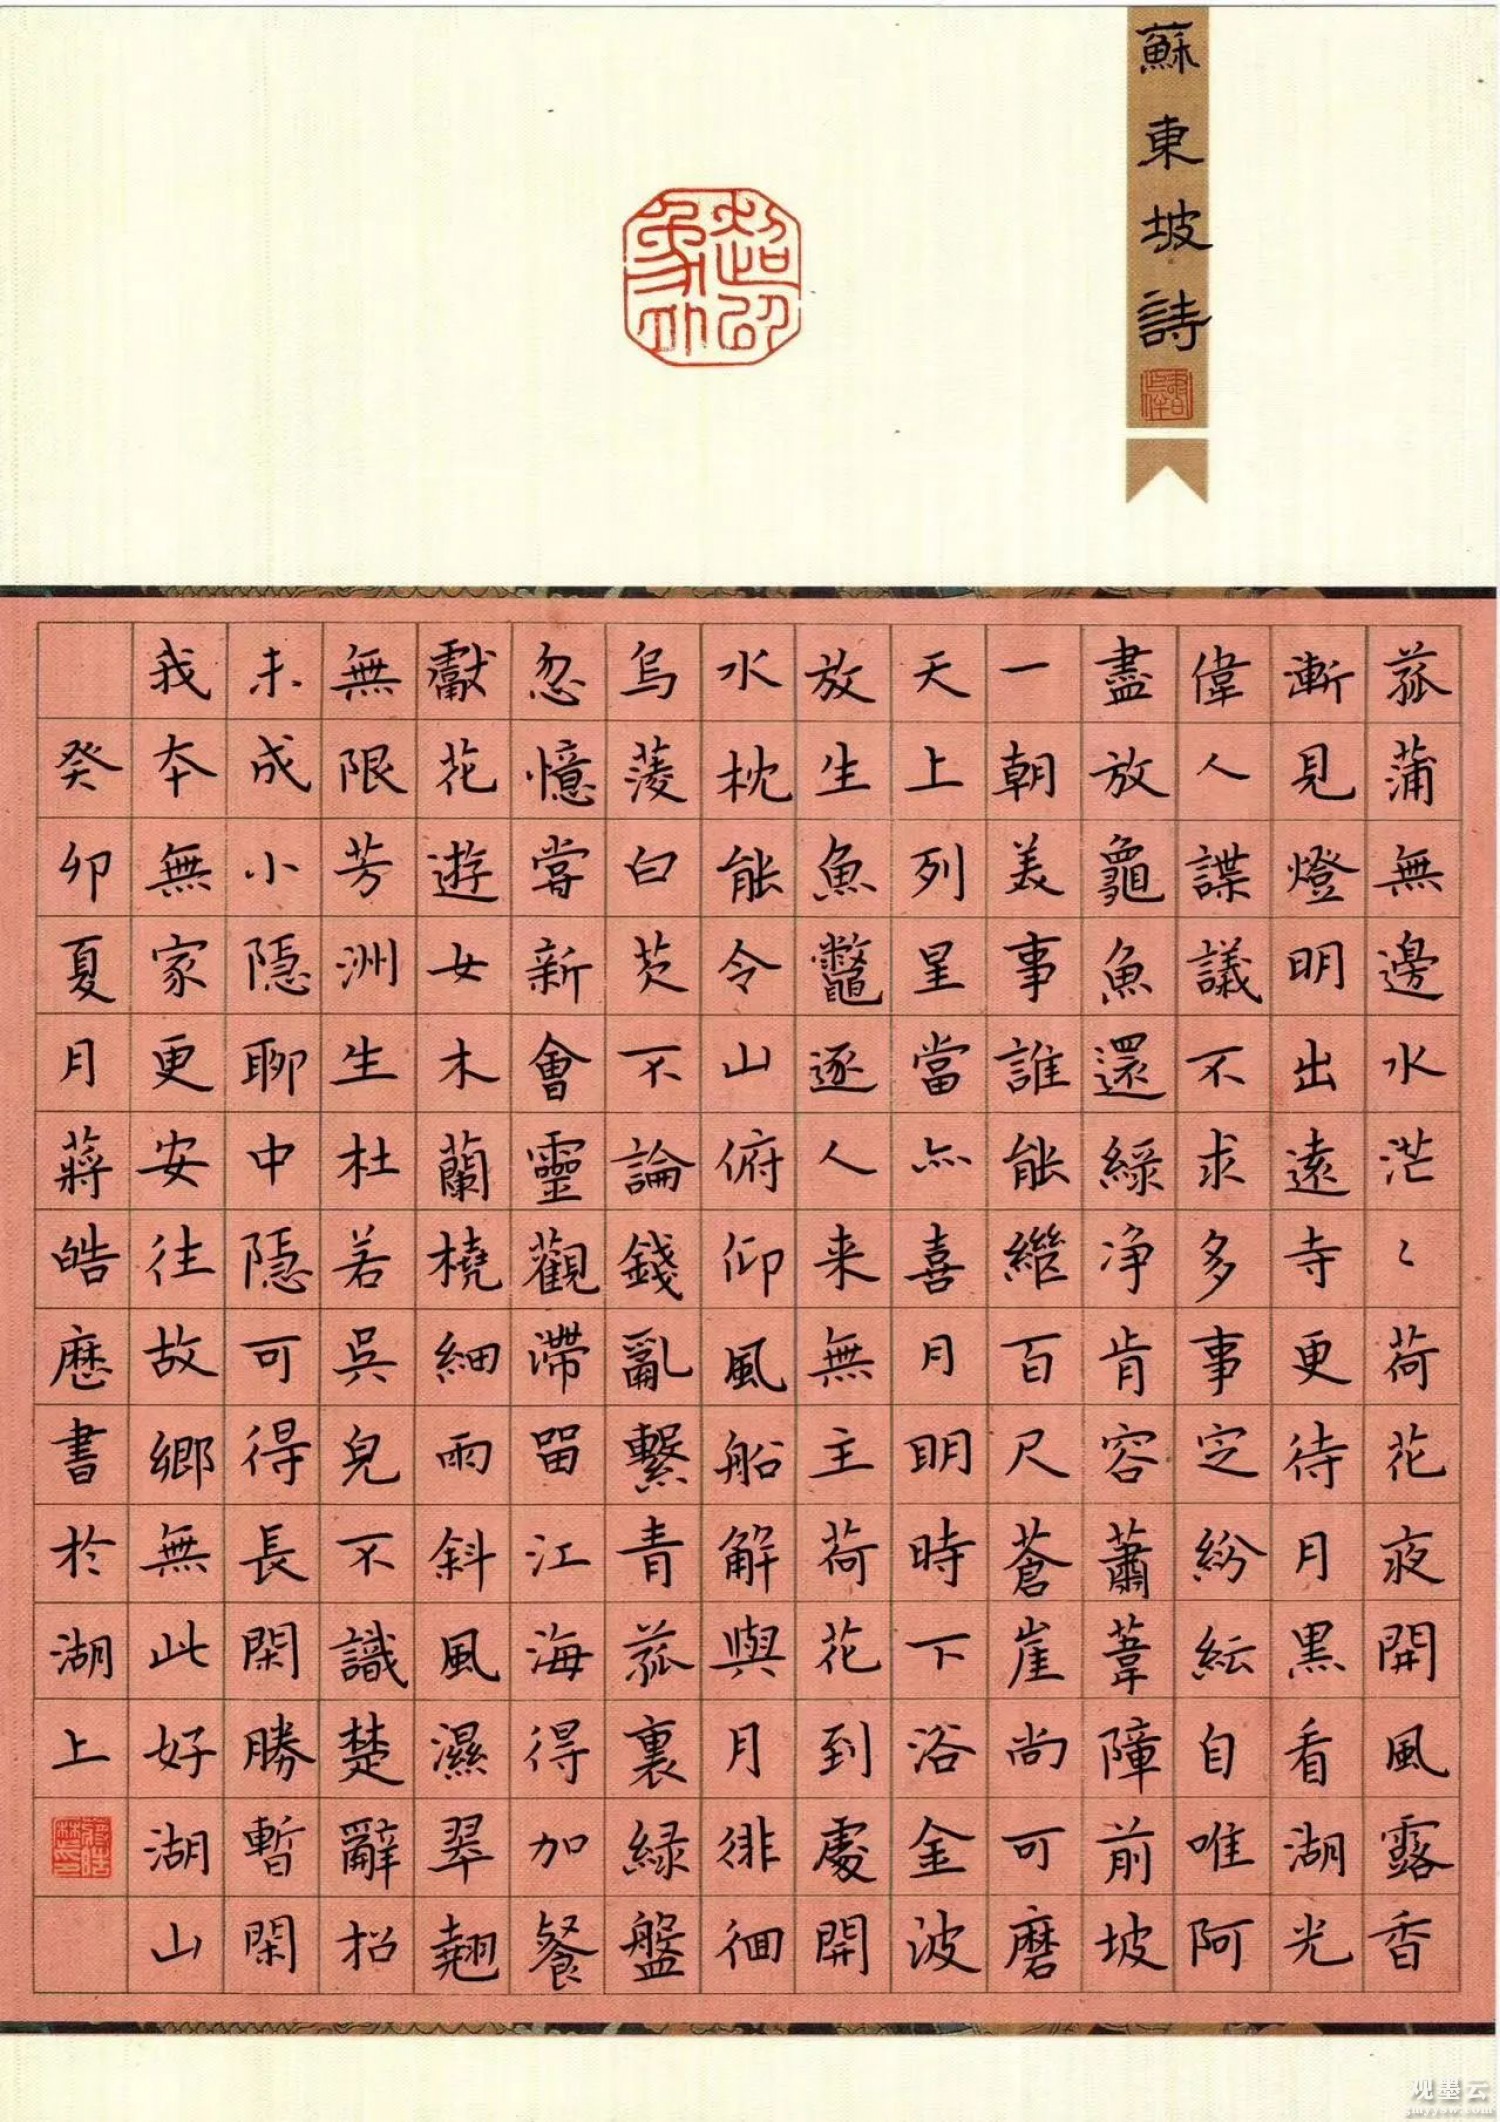 蘇東坡詩
超以象外
菰蒲無邊水茫〻荷花夜開風露香
漸見燈明出遠寺更待月黑看湖光
偉人諜議不求多事定紛紜自唯阿
盡放龜魚還綠净肯容蕭葦障前坡
一朝美事誰能繼百尺蒼崖尚可磨
天上列星當亦喜月明時下浴金波
放生魚鼈逐人来無主荷花到處開
水枕能令山俯仰風船解與月徘徊
烏菱白芡不論錢亂繫青菰裹綠盤
忽憶嘗新會靈觀滯留江海得加餐
獻花遊女木蘭橈細雨斜風濕翠翹
無限芳洲生杜若吳兒不識楚辭招
未成小隱聊中隱可得長閑勝暫閑
我本無家更安往故鄉無此好湖山
癸卯夏月蔣皓書於湖上
观墨云